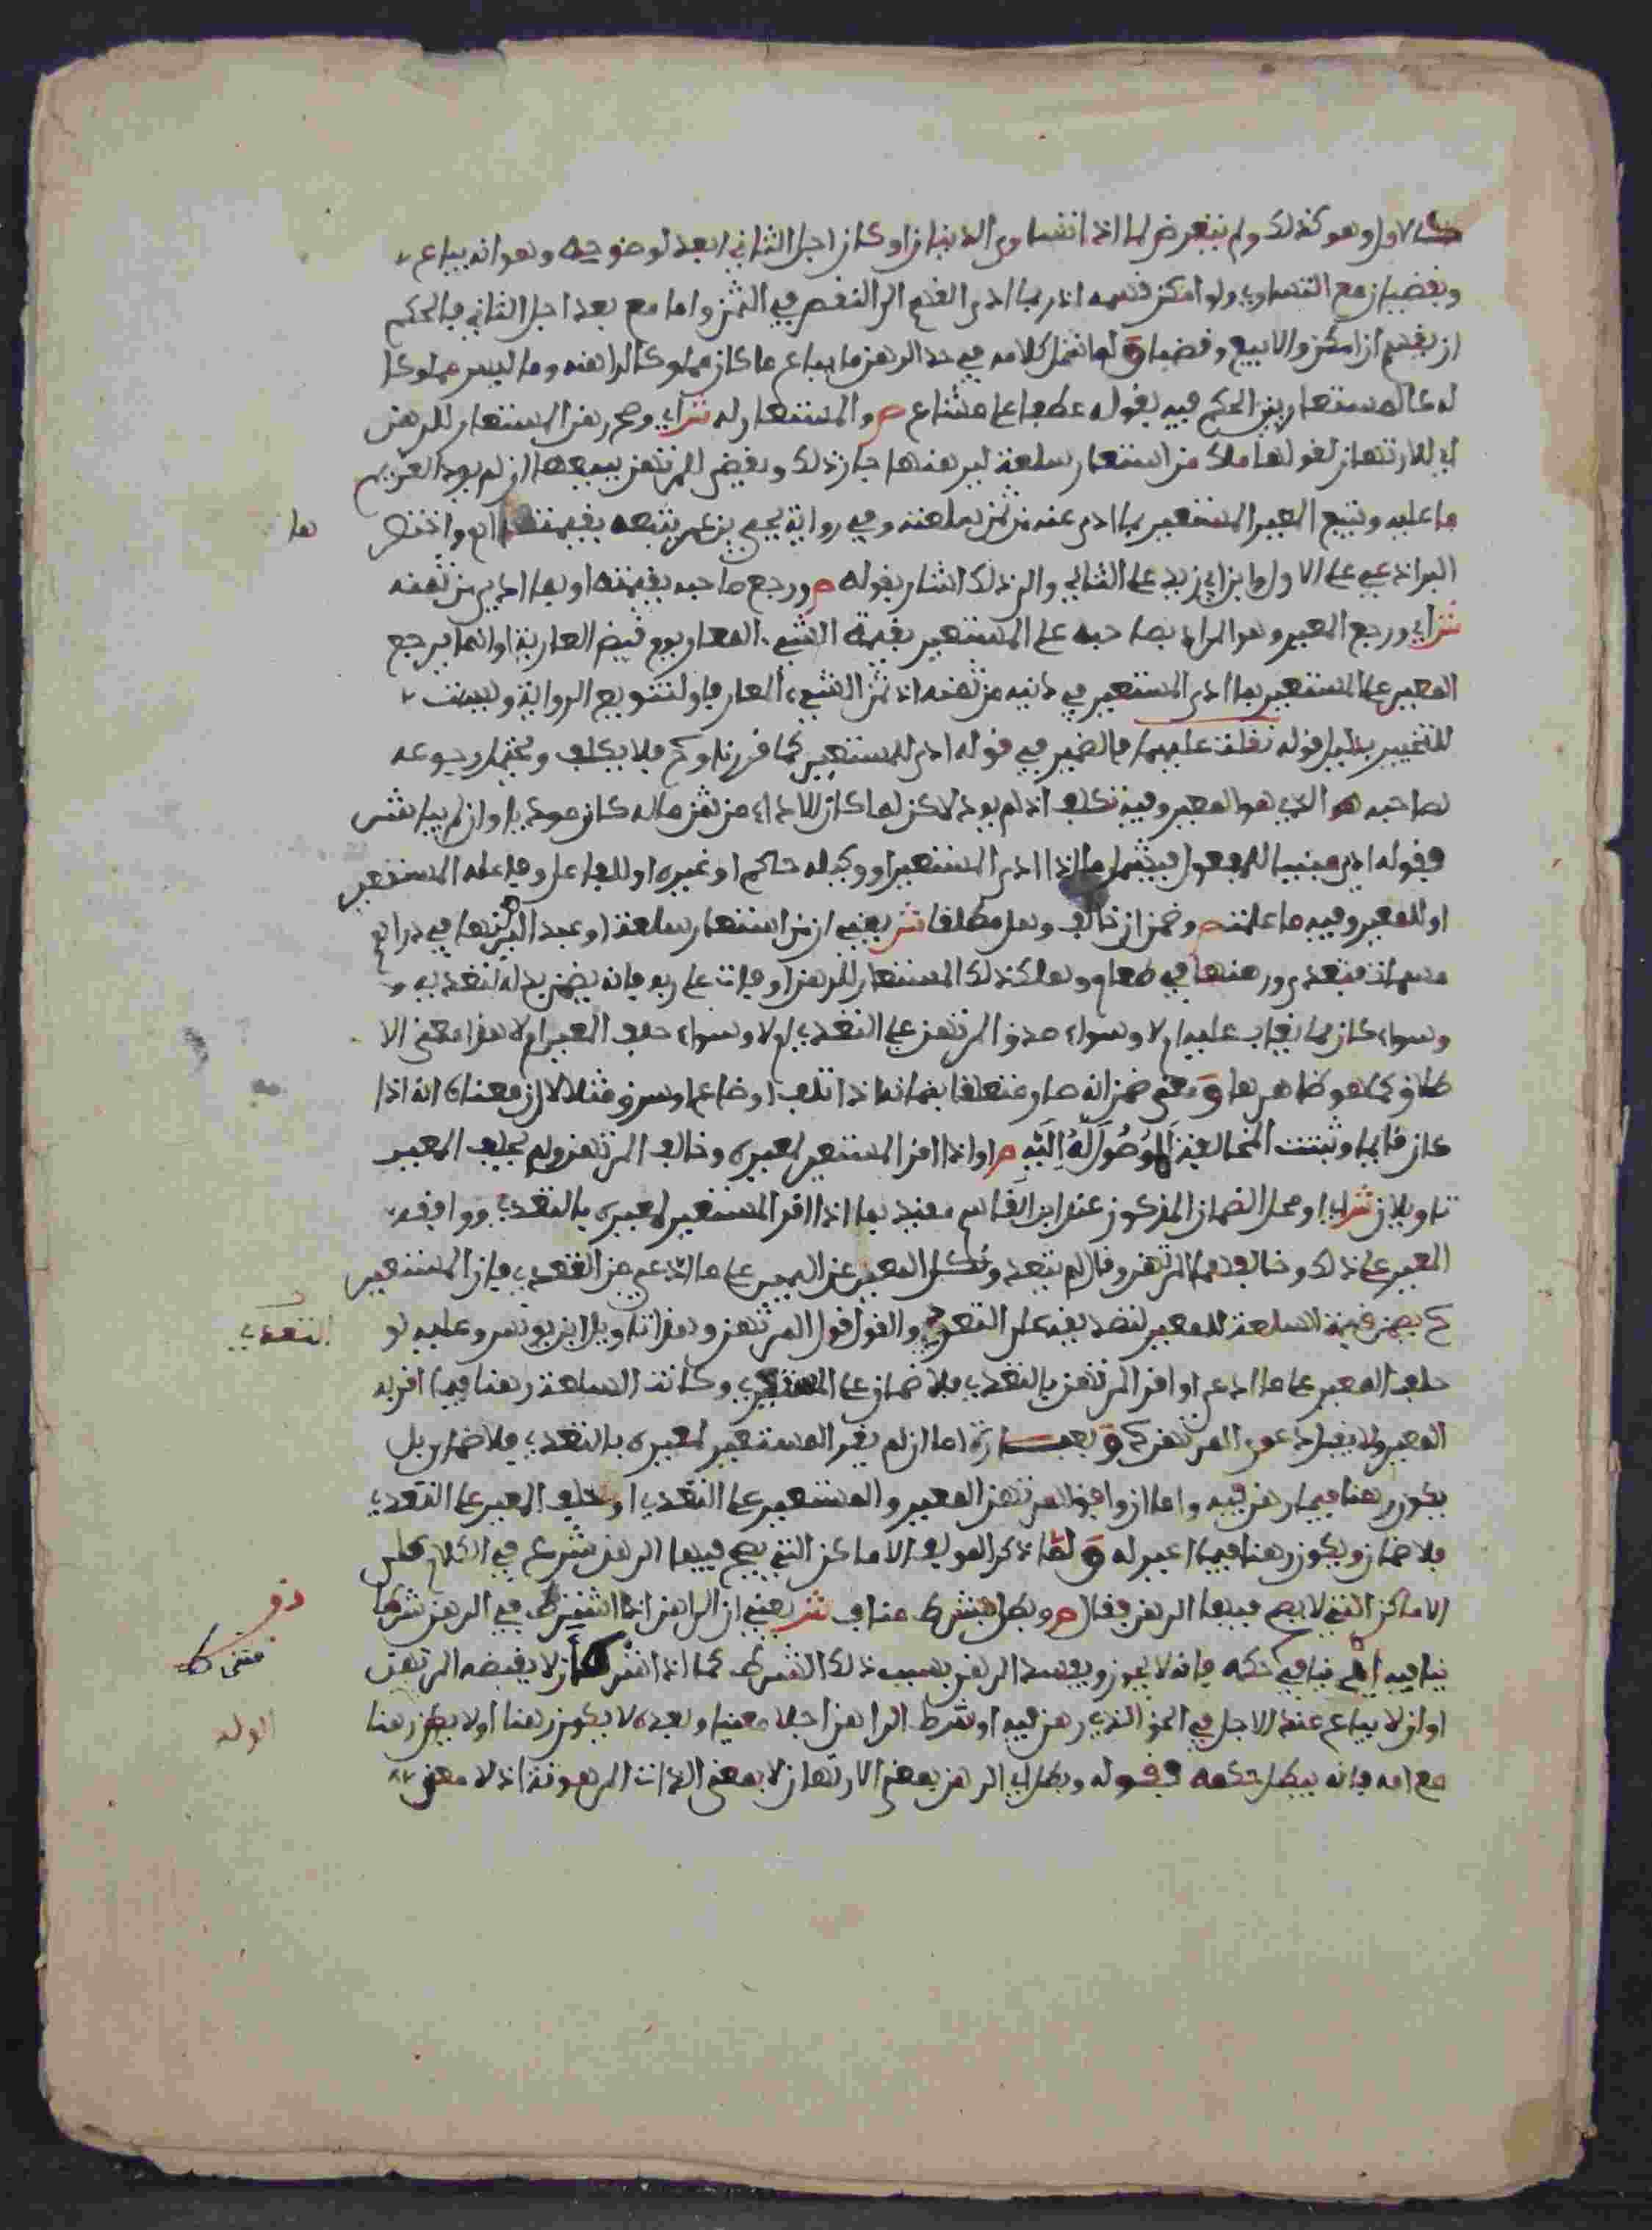 الاول وهو كذلك ولم يتعرض لما اذا تساوى الدينان او كان اجل الثاني ابعد لوضوحه وهو انه يباع
ويقضيان مع التساوي ولو امكن قسمه اذ ربما ادى القسم الى النقص في الثمن واما مع بعد اجل الثاني فالحكم
ان يقسم ان امكن والا بيع وقضيا و لما شمل كلامه في حد الرهن ما يباع ما كان مملوكا لراهنه وما ليس مملوكا
له كالمستعار بين الحكم فيه بقوله عطفا على مشاع ص والمستعار له ش اي وصح رهن المستعار للرهن
اي للارتهان لقولها مالك من استعار سلعة ليرهنها جاز ذلك ويقضى للمرتهن ببيعها ان لم يود الغريم
ما عليه ويتبع المعير المستعير بما ادى عنه من ثمن سلعته وفي رواية يحيى بن عمر يتبعه بقيمتها اه واختصر
ها
البراذعي على الاول وابن ابي زيد على الثاني والى ذلك اشار بقوله ص ورجع صاحبه بقيمته او بما ادى من ثمنه
ش اي ورجع المعير وهو المراد بصاحبه على المستعير بقيمة الشيء المعار يوم قبض العارية او انما يرجع
المعير على المستعير بما ادى المستعير في دينه من ثمنه اذ ثمن الشيء المعار فاو لتنويع الرواية وليست
للتخيير بدليل قوله نقلت عليهما فالضمير في قوله ادى للمستعير كما قررنا وح فلا تكلف ويحتمل رجوعه
لصاحبه الذي هو المعير وفيه تكلف اذ لم يود لاكن لما كان الاداء من ثمن ماله كان موديا وان لم يباشر
فقوله ادى مبنيا للمفعول فيشمل ما اذا ادى المستعير او وكيله حاكم او غيره او للفاعل وفاعله المستعير
او المعير وفيه ما علمت ص وضمن ان خالف وهل مطلقا ش يعني ان من استعار سلعة او عبدا ليرتهنها في دراهم
مسمات فتعدى ورهنها في طعام وهلك ذلك المستعار للرهن او فات على ربه فانه يضمن بدله لتعديه
وسواء كان مما يغاب عليه ام لا وسواء صدق المرتهن على التعدي ام لا وسواء حلف المعير ام لا هذا معنى الا
طلاق كما هو ظاهرها و معنى ضمن انه صار متعلقا بضمانه اذا تلف او ضاع او سرق مثلا لان معناه انه اذا
كان قايما وثبتت المخالفة الوصول اليه ص او اذا اقر المستعير لمعيره وخالف المرتهن ولم يحلف المعير
تاويلان ش اي او محل الضمان المذكور عند ابن القاسم مقيد بما اذا اقر المستعير لمعيره بالتعدي ووافقه
المعير على ذلك وخالفهما المرتهن وقال لم يتعد ونكل المعير عن اليمين على ما ادعي من التعدي فان المستعير
ح يضمن قيمة السلعة للمعير لتصديقه على التعدي والقول قول المرتهن وهذا تاويل ابن يونس وعليه لو
التعدي
حلف المعير على ما ادعى او اقر المرتهن بالتعدي فلا ضمان على المستعير وكانت السلعة رهنا فيما اقر به
المعير ولا يقبل دعوى المرتهن ح و بعبارة اما ان لم يقر المستعير لمعيره بالتعدي فلا ضمان بل
يكون رهنا فيما رهن فيه واما ان وافق المرتهن المعير والمستعير على التعدي او حلف المعير على التعدي
فلا ضمان ويكون رهنا فيما اعير له و لما ذكر المولف الاماكن التي يصح فيها الرهن شرع في الكلام على
الاماكن التي لا يصح فيها الرهن فقال ص وبطل بشرط مناف ش يعني ان الراهن اذا اشترط في الرهن شرطا
ينافيه اي ينافي حكمه فانه لا يجوز ويفسد الرهن بسبب ذلك الشرط كما اذا اشترط ان لا يقبضه المرتهن
او ان لا يباع عند الاجل في الحق الذي رهن فيه او شرط الراهن اجلا معينا وبعده لا يكون رهنا او لا يكون رهنا
الولد
مع امه فانه يبطل حكمه فقوله وبطل اي الرهن بمعنى الارتهان لا بمعنى الذات المرهونة اذ لا معنى